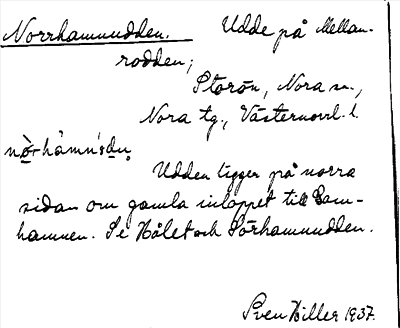 Norrhamnudden. Udde på Mellan-
rodden;
Storön, Nora sn.,
Nora tg., Västernorrl. l.
Udden ligger på norra
sidan om gamla inloppet till Gam-
hamnen. Se Hålet och Sörhamnudden.
Sven Hiller 1937.